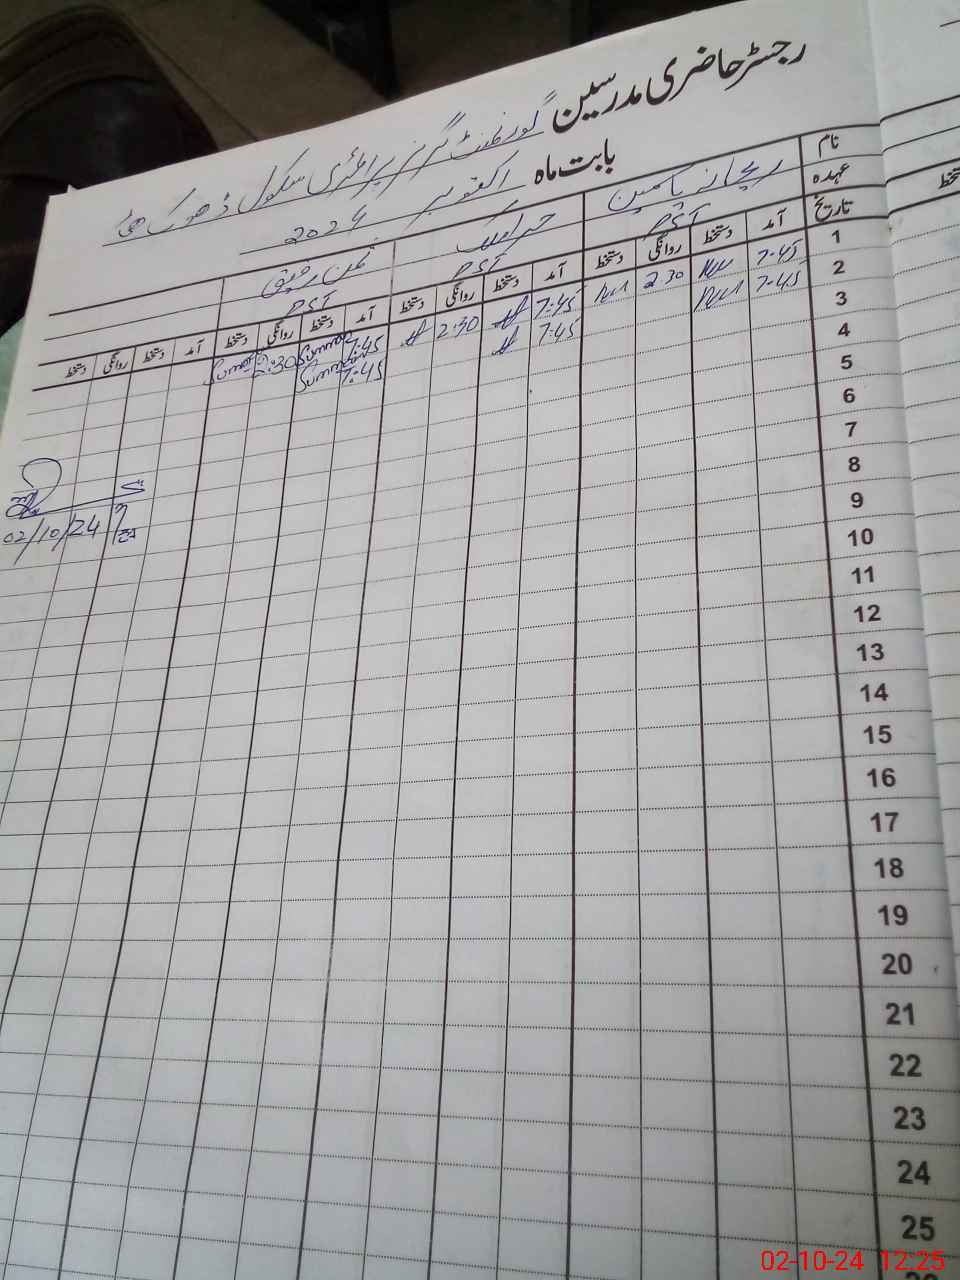 رجسٹر حاضری مدرسین گورنمنٹ گرلز پرائمری سکول ڈھوک
بابت ماہ اکتوبر 2024
نام ریحانہ یاسمین حرا ملک ثمن رفیق
عہدہ
تاریخ آمد دستخط روانگی دستخط آمد دستخط روانگی دستخط آمد دستخط روانگی دستخط آمد دستخط روانگی دستخط
1 7:45 2:30 7:45 2:30 7:45 2:30
2 7:45 7:45 7:45
3
4
5
6
7
8
9
10
11
12
13
14
15
16
17
18
19
20
21
22
23
24
25
02/10/24
دستخط
02-10-24 12:25